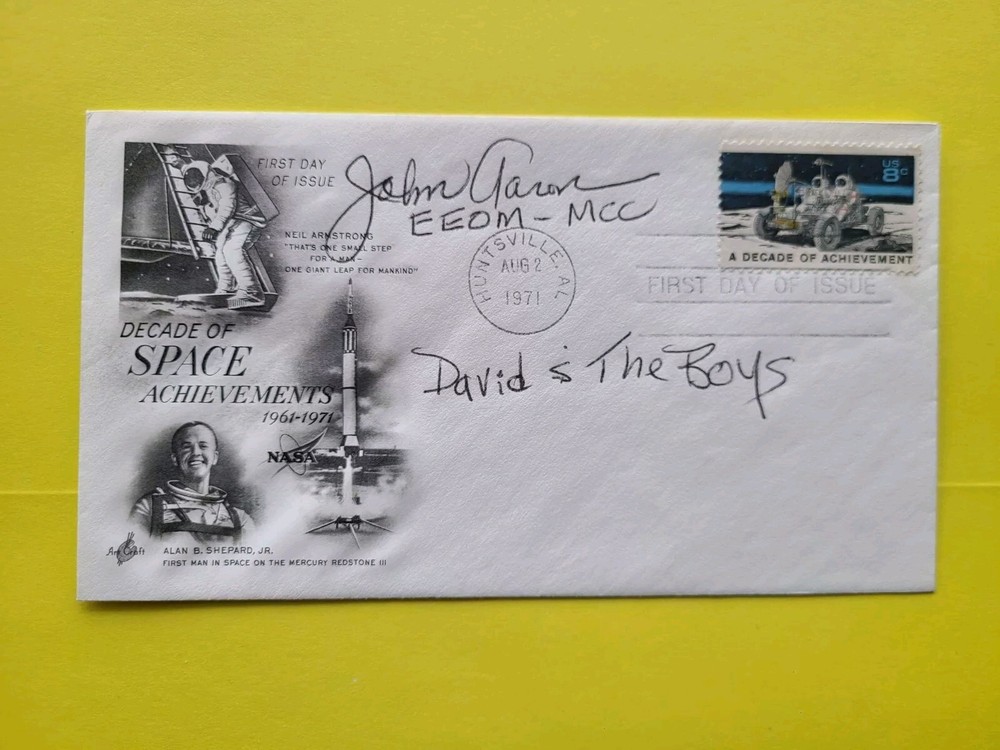 FIRST DAY
OF ISSUE
John Aaron
EEOM - MCC
US
8c
A DECADE OF ACHIEVEMENT
NEIL ARMSTRONG
"THAT'S ONE SMALL STEP
FOR A MAN—
ONE GIANT LEAP FOR MANKIND"
HUNTSVILLE, AL
AUG 2
1971
FIRST DAY OF ISSUE
DECADE OF
SPACE
ACHIEVEMENTS
1961-1971
David & The Boys
NASA
ArtCraft
ALAN B. SHEPARD, JR.
FIRST MAN IN SPACE ON THE MERCURY REDSTONE III